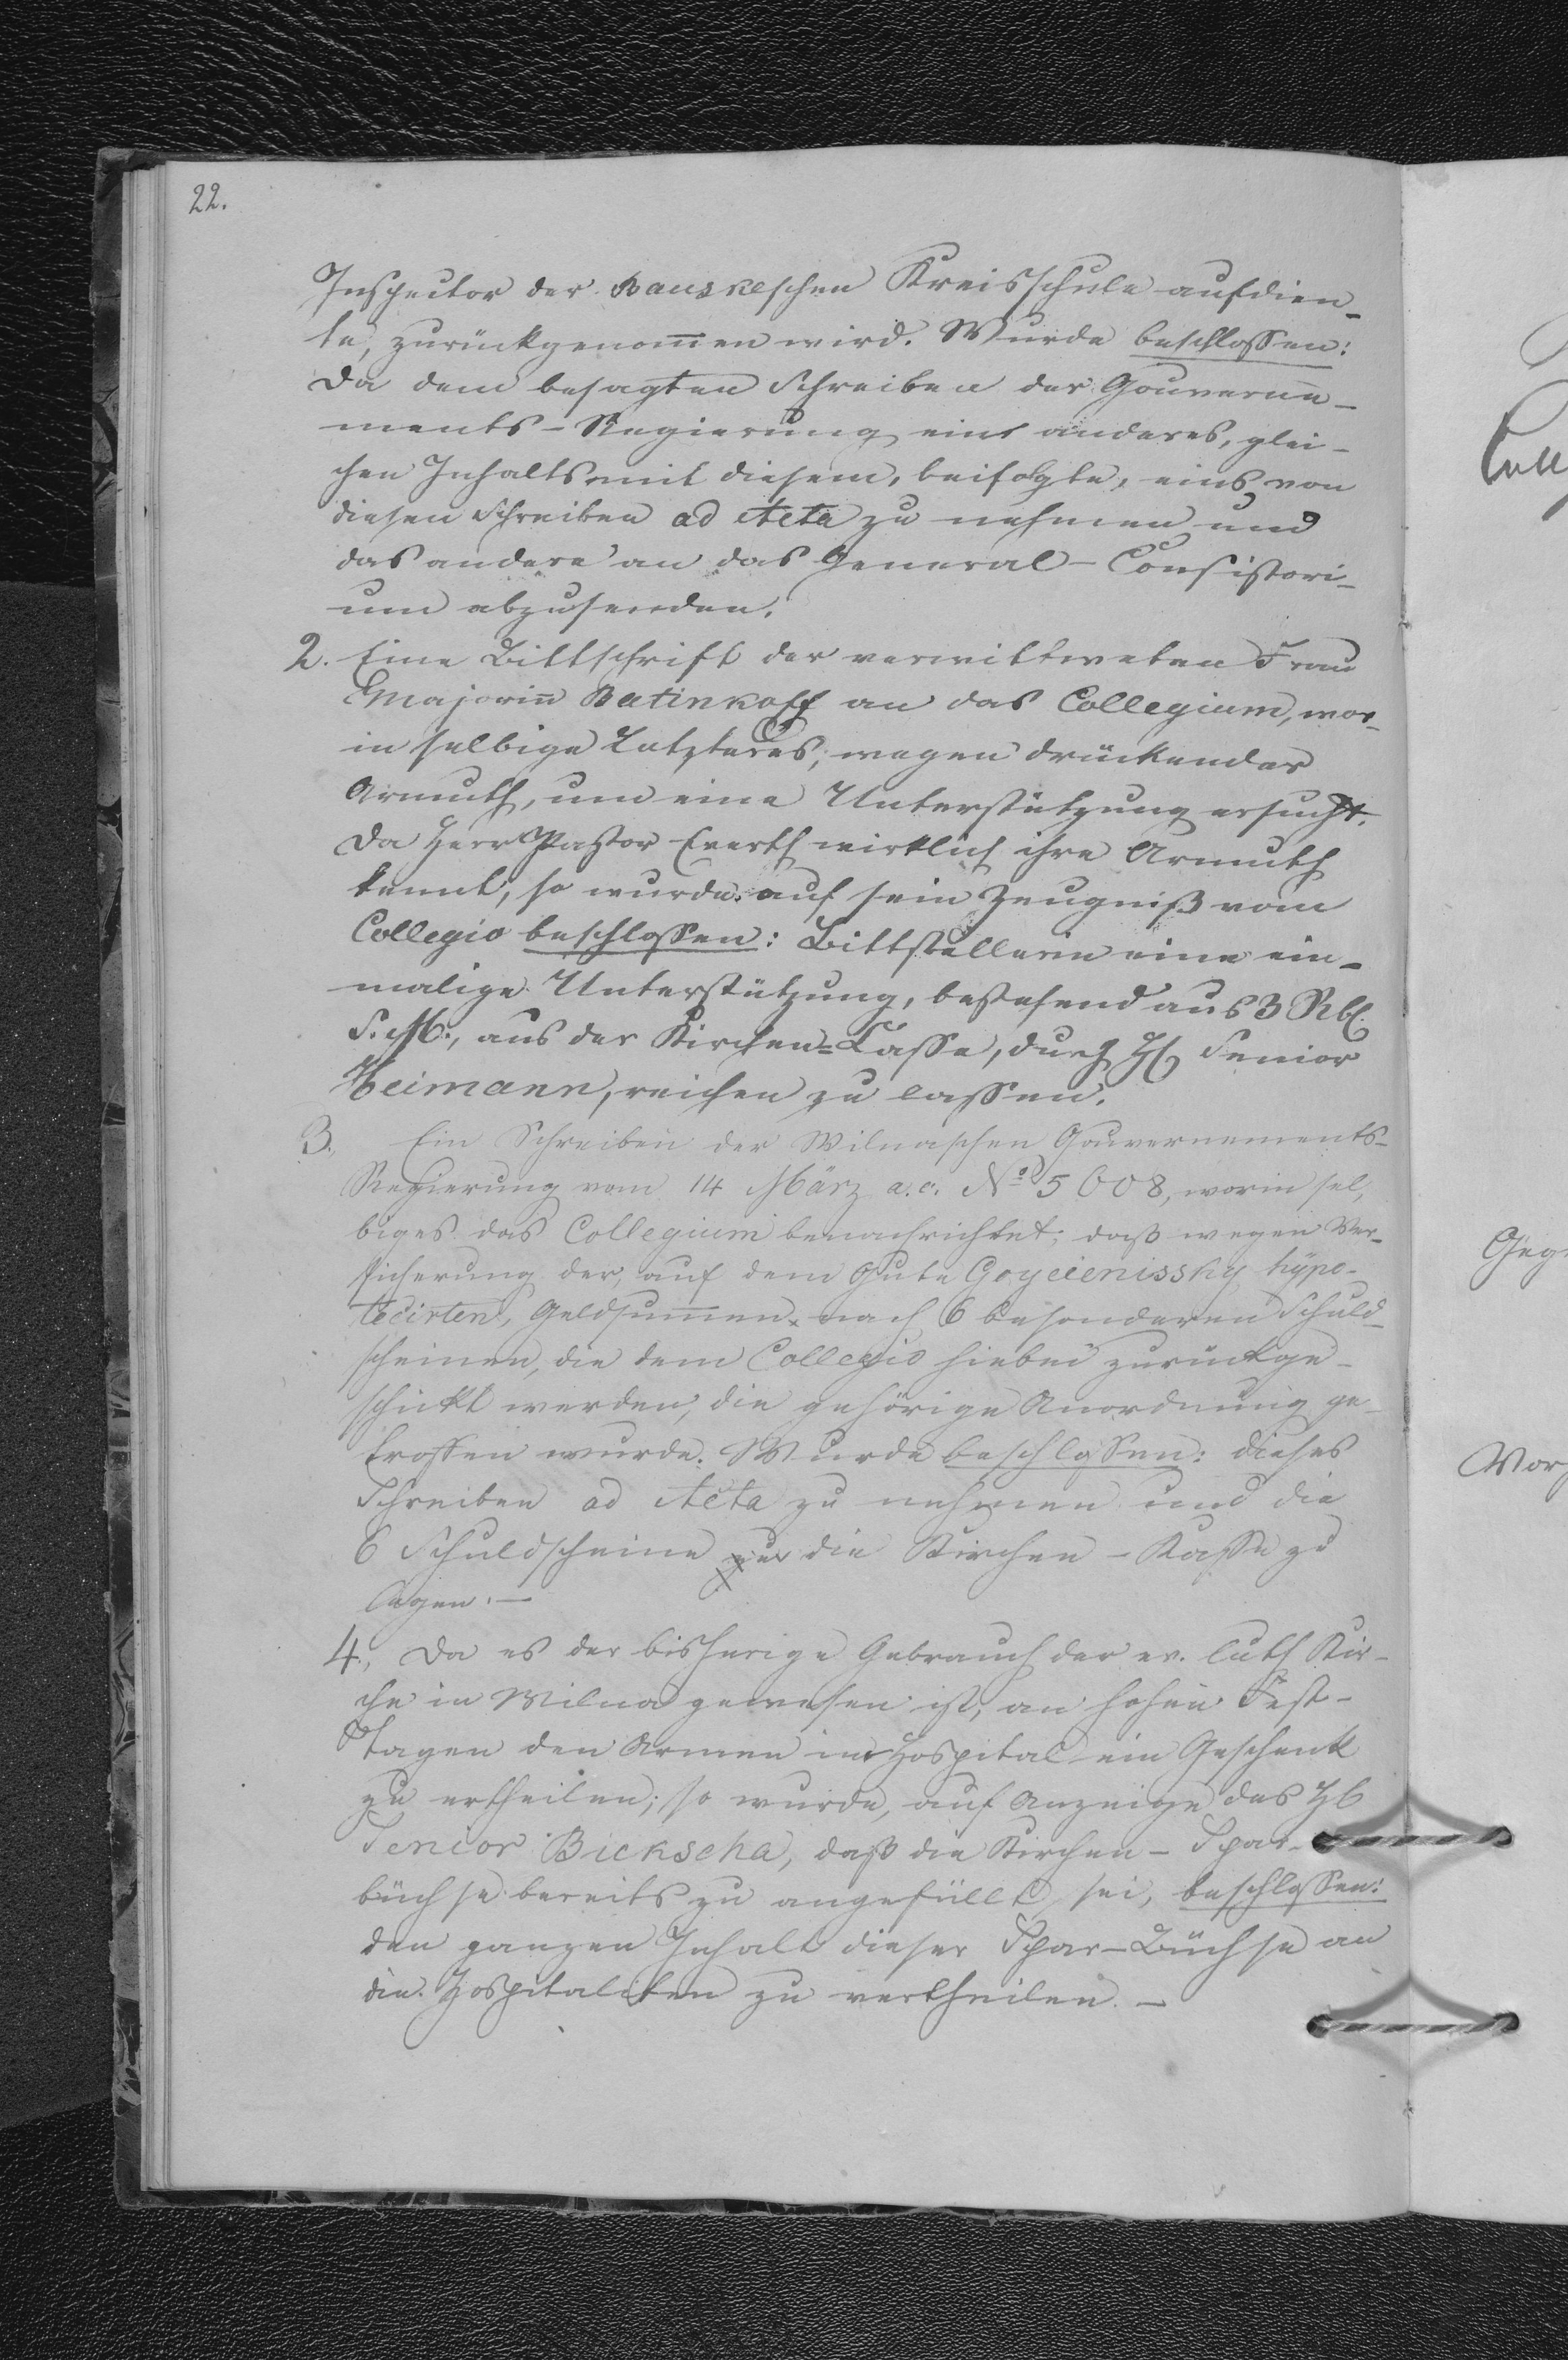 22.
Inspector der Bauskeschen Kreisschule aufdien-
te, zurückgenom̅en wird. Wurde beschlossen:
Da dem besagten Schreiben der Gouverne-
ments-Regierung ein anderes, glei-
chen Inhalts mit diesem, beifolgte, eins von
diesen Schreiben ad Acta zu nehmen und
das andere an das General-Consistori-
um abzusenden.
2. Eine Bittschrift der verwittweten Frau
Majorin̅ Batinkoff an das Collegium, wor-
in selbige Letzteres, wegen drückender
Armuth, um eine Unterstützung ersucht.
Da Herr Pastor Everth wirklich ihre Armuth
kennt, so wurde auf sein Zeugniß vom
Collegio beschlossen: Bittstellerin eine ein-
malige Unterstützung, bestehend aus 3 Rbl.
S. M., aus der Kirchen-Casse, durch H. Senior
Heimann, reichen zu lassen.
3. Ein Schreiben der Wilnaschen Gouvernements-
Regierung vom 14 März a. c. No 5608, worin sel-
biges das Collegium benachrichtet, daß wegen Ver-
sicherung der, auf dem Gute hypo-
tecirten, Geldsum̅en nach 6 besonderen Schuld-
scheinen, die dem Collegio hiebei zurückge-
schickt werden, die gehörige Anordnung ge-
troffen wurde. Wurde beschlossen: dieses
Schreiben ad Acta zu nehmen und die
6 Schuldscheine die Kirchen-Kasse zu
legen.-
4., Da es der bisherige Gebrauch der ev. luth Kir-
che in Wilna gewesen ist, an hohen Fest-
tagen den Armen im Hospital ein Geschenk
zu ertheilen; so wurde, auf Anzeige des H
Senior Bickscha, daß die Kirchen-Spar-
büchse bereits zu angefüllt sei, beschlossen:
den ganzen Inhalt dieser Spar-Büchse an
die Hospitaliten zu vertheilen.-